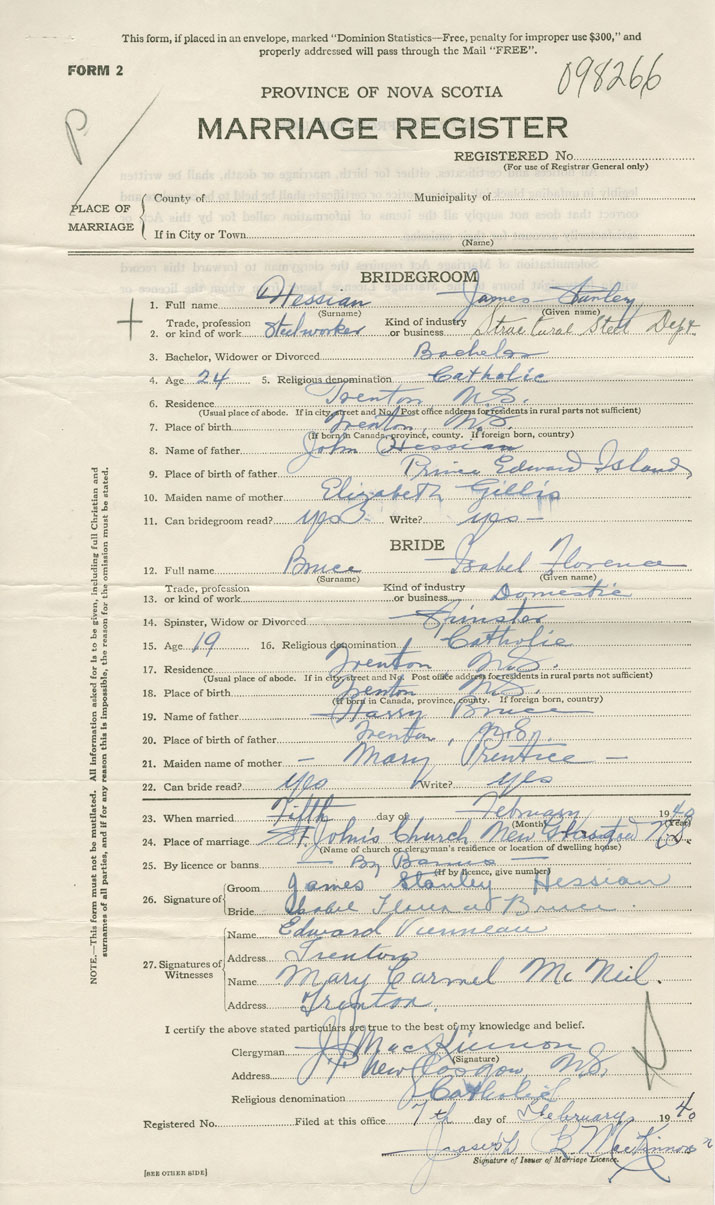 This form, if placed in an envelope, marked "Dominion Statistics—Free, penalty for improper use $300," and
properly addressed will pass through the Mail "FREE".
FORM 2
098266
P
PROVINCE OF NOVA SCOTIA
MARRIAGE REGISTER
REGISTERED No.
(For use of Registrar General only)
PLACE OF MARRIAGE
County of Municipality of
If in City or Town
(Name)
BRIDEGROOM
1. Full name Hessian James Stanley
(Surname) (Given name)
2. Trade, profession or kind of work Steelworker Kind of industry or business Structural Steel Dept.
3. Bachelor, Widower or Divorced Bachelor
4. Age 24 5. Religious denomination Catholic
6. Residence Trenton N.S.
(Usual place of abode. If in city, street and No. Post office address for residents in rural parts not sufficient)
7. Place of birth Trenton, N.S.
(If born in Canada, province, county. If foreign born, country)
8. Name of father John Hessian
9. Place of birth of father Prince Edward Island
10. Maiden name of mother Elizabeth Gillis
11. Can bridegroom read? yes Write? yes –
BRIDE
12. Full name Bruce Isabel Florence
(Surname) (Given name)
13. Trade, profession or kind of work Kind of industry or business Domestic
14. Spinster, Widow or Divorced Spinster
15. Age 19 16. Religious denomination Catholic
17. Residence Trenton N.S.
(Usual place of abode. If in city, street and No. Post office address for residents in rural parts not sufficient)
18. Place of birth Trenton N.S.
(If born in Canada, province, county. If foreign born, country)
19. Name of father Harry Bruce
20. Place of birth of father Trenton, N.S.
21. Maiden name of mother – Mary Prentice –
22. Can bride read? yes Write? yes
23. When married Fifth day of February 1940
(Month) (Year)
24. Place of marriage St. John's Church New Glasgow N.S.
(Name of church or clergyman's residence or location of dwelling house)
25. By licence or banns – By Banns –
(If by licence, give number)
26. Signature of
Groom James Stanley Hessian
Bride Isabel Florence Bruce.
27. Signatures of Witnesses
Name Edward Vienneau
Address Trenton
Name Mary Carmel McNeil.
Address Trenton.
I certify the above stated particulars are true to the best of my knowledge and belief.
Clergyman MacKinnon
(Signature)
Address New Glasgow, N.S.
Religious denomination Catholic
Registered No. Filed at this office 7th day of February 1940
Joseph B. MacKinnon
Signature of Issuer of Marriage Licence.
[SEE OTHER SIDE]
NOTE.—This form must not be mutilated. All information asked for is to be given, including full Christian and
surnames of all parties, and if for any reason this is impossible, the reason for the omission must be stated.